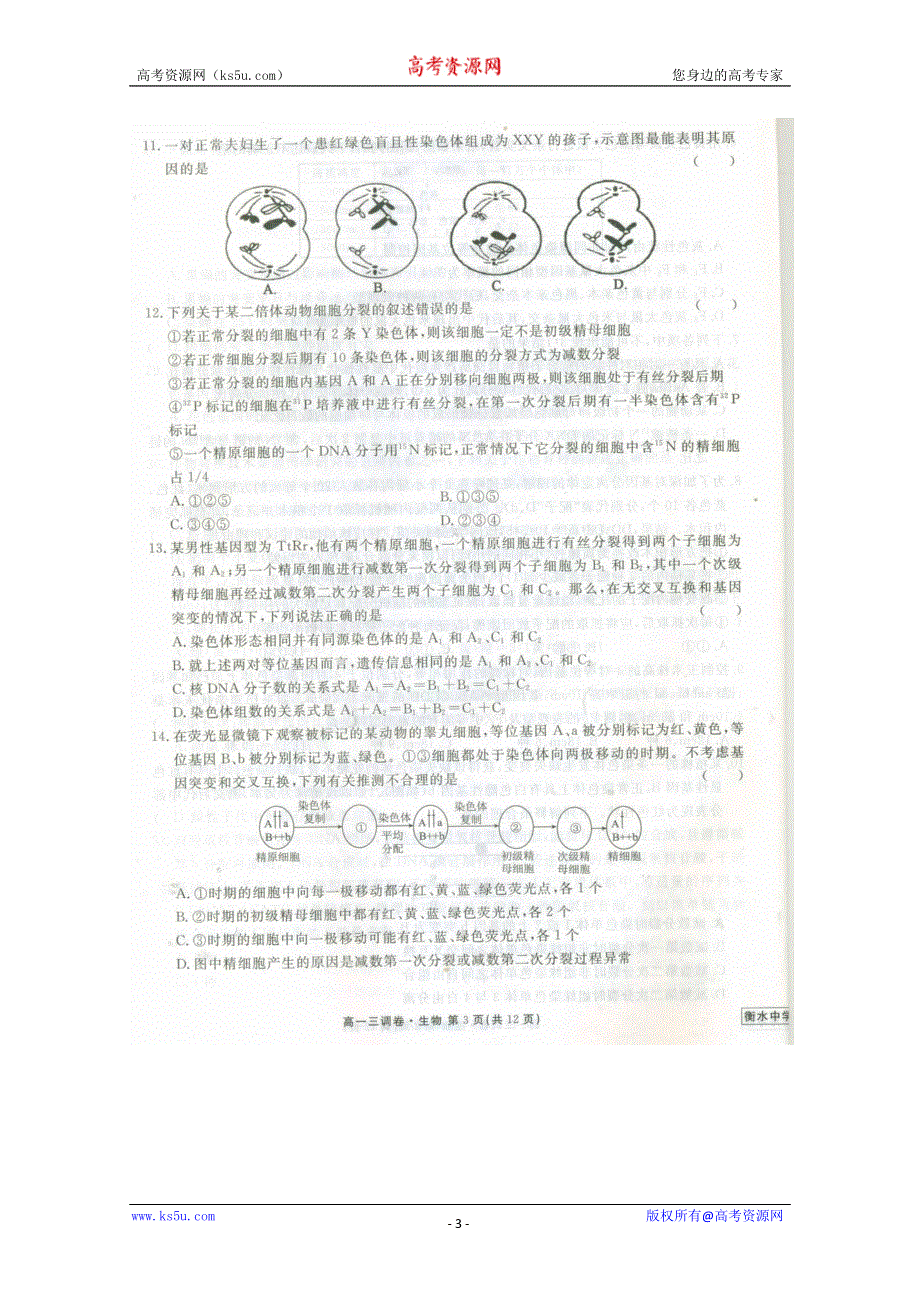 高考资源网（ks5u.com）
高考资源网
您身边的高考专家
11. 一对正常夫妇生了一个患红绿色盲且性染色体组成为 XXY 的孩子,示意图最能表明其原
因的是 ( )
A. B. C. D.
12. 下列关于某二倍体动物细胞分裂的叙述错误的是 ( )
①若正常分裂的细胞中有 2 条 Y 染色体,则该细胞一定不是初级精母细胞
②若正常细胞分裂后期有 10 条染色体,则该细胞的分裂方式为减数分裂
③若正常分裂的细胞内基因 A 和 A 正在分别移向细胞两极,则该细胞处于有丝分裂后期
④³²P 标记的细胞在³¹P 培养液中进行有丝分裂,在第一次分裂后期有一半染色体含有³²P
标记
⑤一个精原细胞的一个 DNA 分子用¹⁵N 标记,正常情况下它分裂的细胞中含¹⁵N 的精细胞
占 1/4
A. ①②⑤ B. ①③⑤
C. ③④⑤ D. ②③④
13. 某男性基因型为 TtRr,他有两个精原细胞,一个精原细胞进行有丝分裂得到两个子细胞为
A₁ 和 A₂;另一个精原细胞进行减数第一次分裂得到两个子细胞为 B₁ 和 B₂,其中一个次级
精母细胞再经过减数第二次分裂产生两个子细胞为 C₁ 和 C₂。那么,在无交叉互换和基因
突变的情况下,下列说法正确的是 ( )
A. 染色体形态相同并有同源染色体的是 A₁ 和 A₂、C₁ 和 C₂
B. 就上述两对等位基因而言,遗传信息相同的是 A₁ 和 A₂、C₁ 和 C₂
C. 核 DNA 分子数的关系式是 A₁=A₂=B₁+B₂=C₁+C₂
D. 染色体组数的关系式是 A₁+A₂=B₁+B₂=C₁+C₂
14. 在荧光显微镜下观察被标记的某动物的睾丸细胞,等位基因 A、a 被分别标记为红、黄色,等
位基因 B、b 被分别标记为蓝、绿色。①③细胞都处于染色体向两极移动的时期。不考虑基
因突变和交叉互换,下列有关推测不合理的是 ( )
染色体 染色体 染色体
复制 平均 复制
分配
A a ① A a ② ③ A
B b B b B b
精原细胞 初级精 次级精 精细胞
母细胞 母细胞
A. ①时期的细胞中向每一极移动都有红、黄、蓝、绿色荧光点,各 1 个
B. ②时期的初级精母细胞中都有红、黄、蓝、绿色荧光点,各 2 个
C. ③时期的细胞中向一极移动可能有红、蓝、绿色荧光点,各 1 个
D. 图中精细胞产生的原因是减数第一次分裂或减数第二次分裂过程异常
高一三调卷·生物 第 3 页(共 12 页)
衡水中学
www.ks5u.com
- 3 -
版权所有@高考资源网